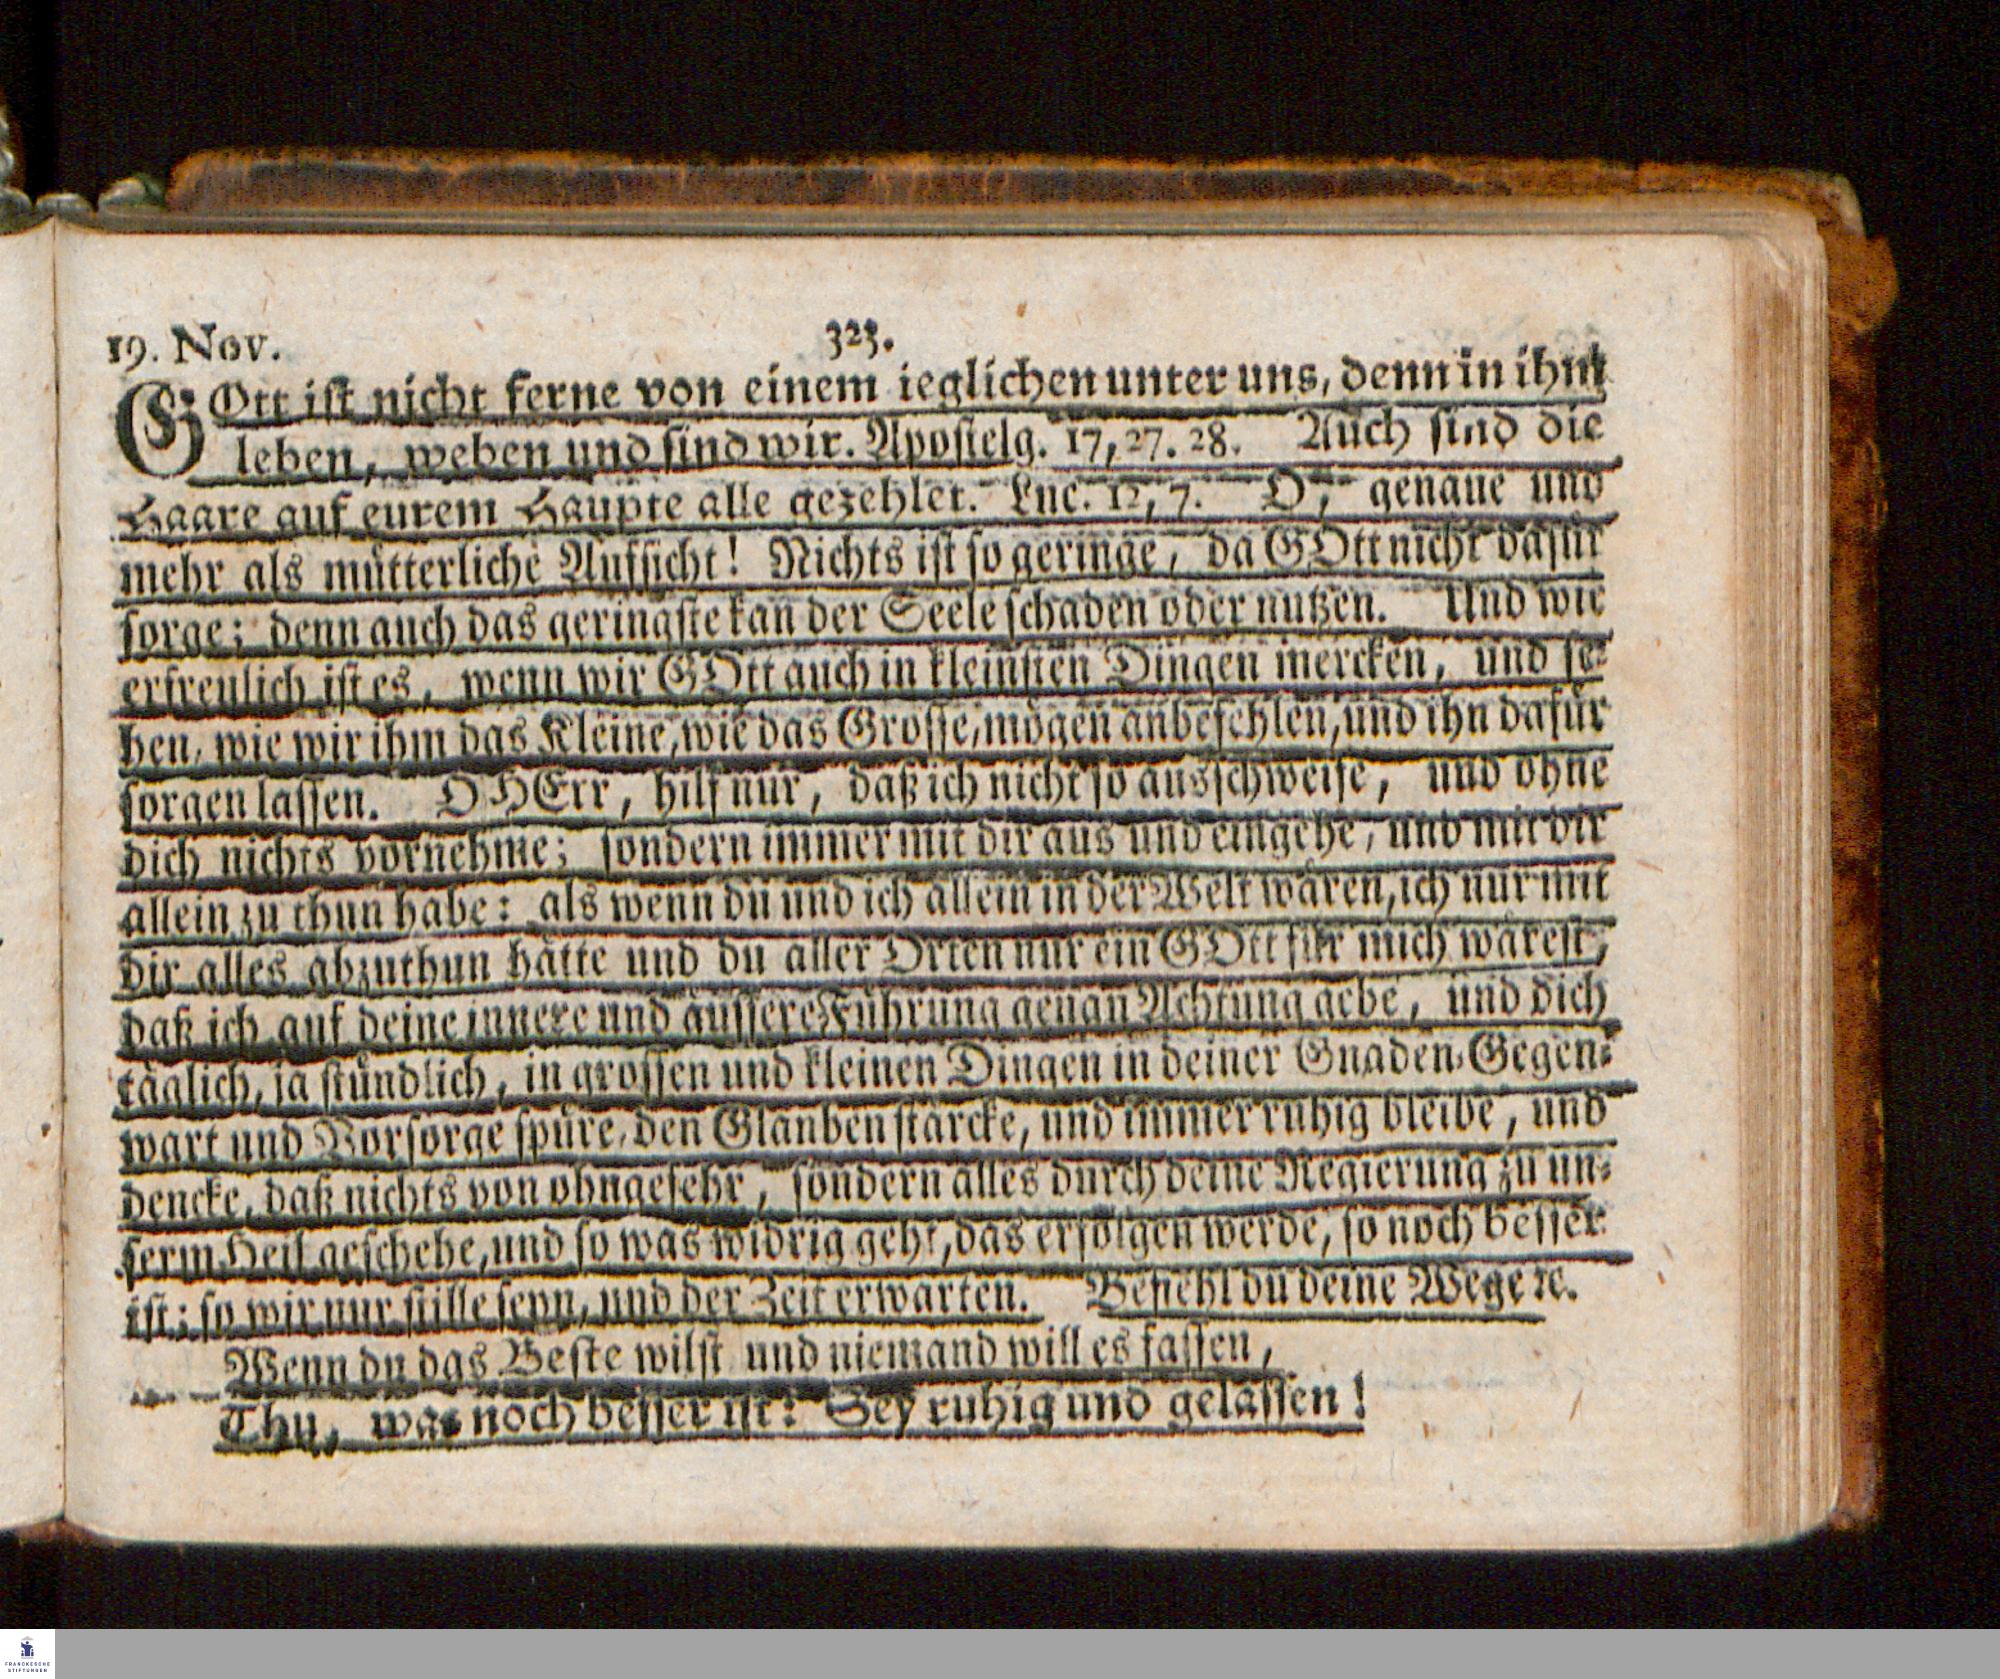 19. Nov.
323.
GOtt ist nicht ferne von einem ieglichen unter uns, denn in ihm
leben, weben und sind wir. Apostelg. 17, 27. 28. Auch sind die
Haare auf eurem Haupte alle gezehlet. Luc. 12, 7. O, genaue und
mehr als mütterliche Aufsicht! Nichts ist so geringe, da GOtt nicht dafür
sorge; denn auch das geringste kan der Seele schaden oder nutzen. Und wie
erfreulich ist es, wenn wir GOtt auch in kleinsten Dingen mercken, und se-
hen, wie wir ihm das Kleine, wie das Grosse, mögen anbefehlen, und ihn dafür
sorgen lassen. O HErr, hilf nur, daß ich nicht so ausschweife, und ohne
dich nichts vornehme; sondern immer mit dir aus und eingehe, und mit dir
allein zu thun habe: als wenn du und ich allein in der Welt wären, ich nur mit
dir alles abzuthun hätte und du aller Orten nur ein GOtt für mich wärest,
daß ich auf deine innere und äussere Führung genau Achtung gebe, und dich
täglich, ja stündlich, in grossen und kleinen Dingen in deiner Gnaden-Gegen-
wart und Vorsorge spüre, den Glauben stärcke, und immer ruhig bleibe, und
dencke, daß nichts von ohngefehr, sondern alles durch deine Regierung zu un-
serm Heil geschehe, und so was widrig geht, das erfolgen werde, so noch besser
ist; so wir nur stille seyn, und der Zeit erwarten. Befiehl du deine Wege ꝛc.
Wenn du das Beste wilst und niemand will es fassen,
Thu, was noch besser ist: Sey ruhig und gelassen!
FRANCKESCHE
STIFTUNGEN